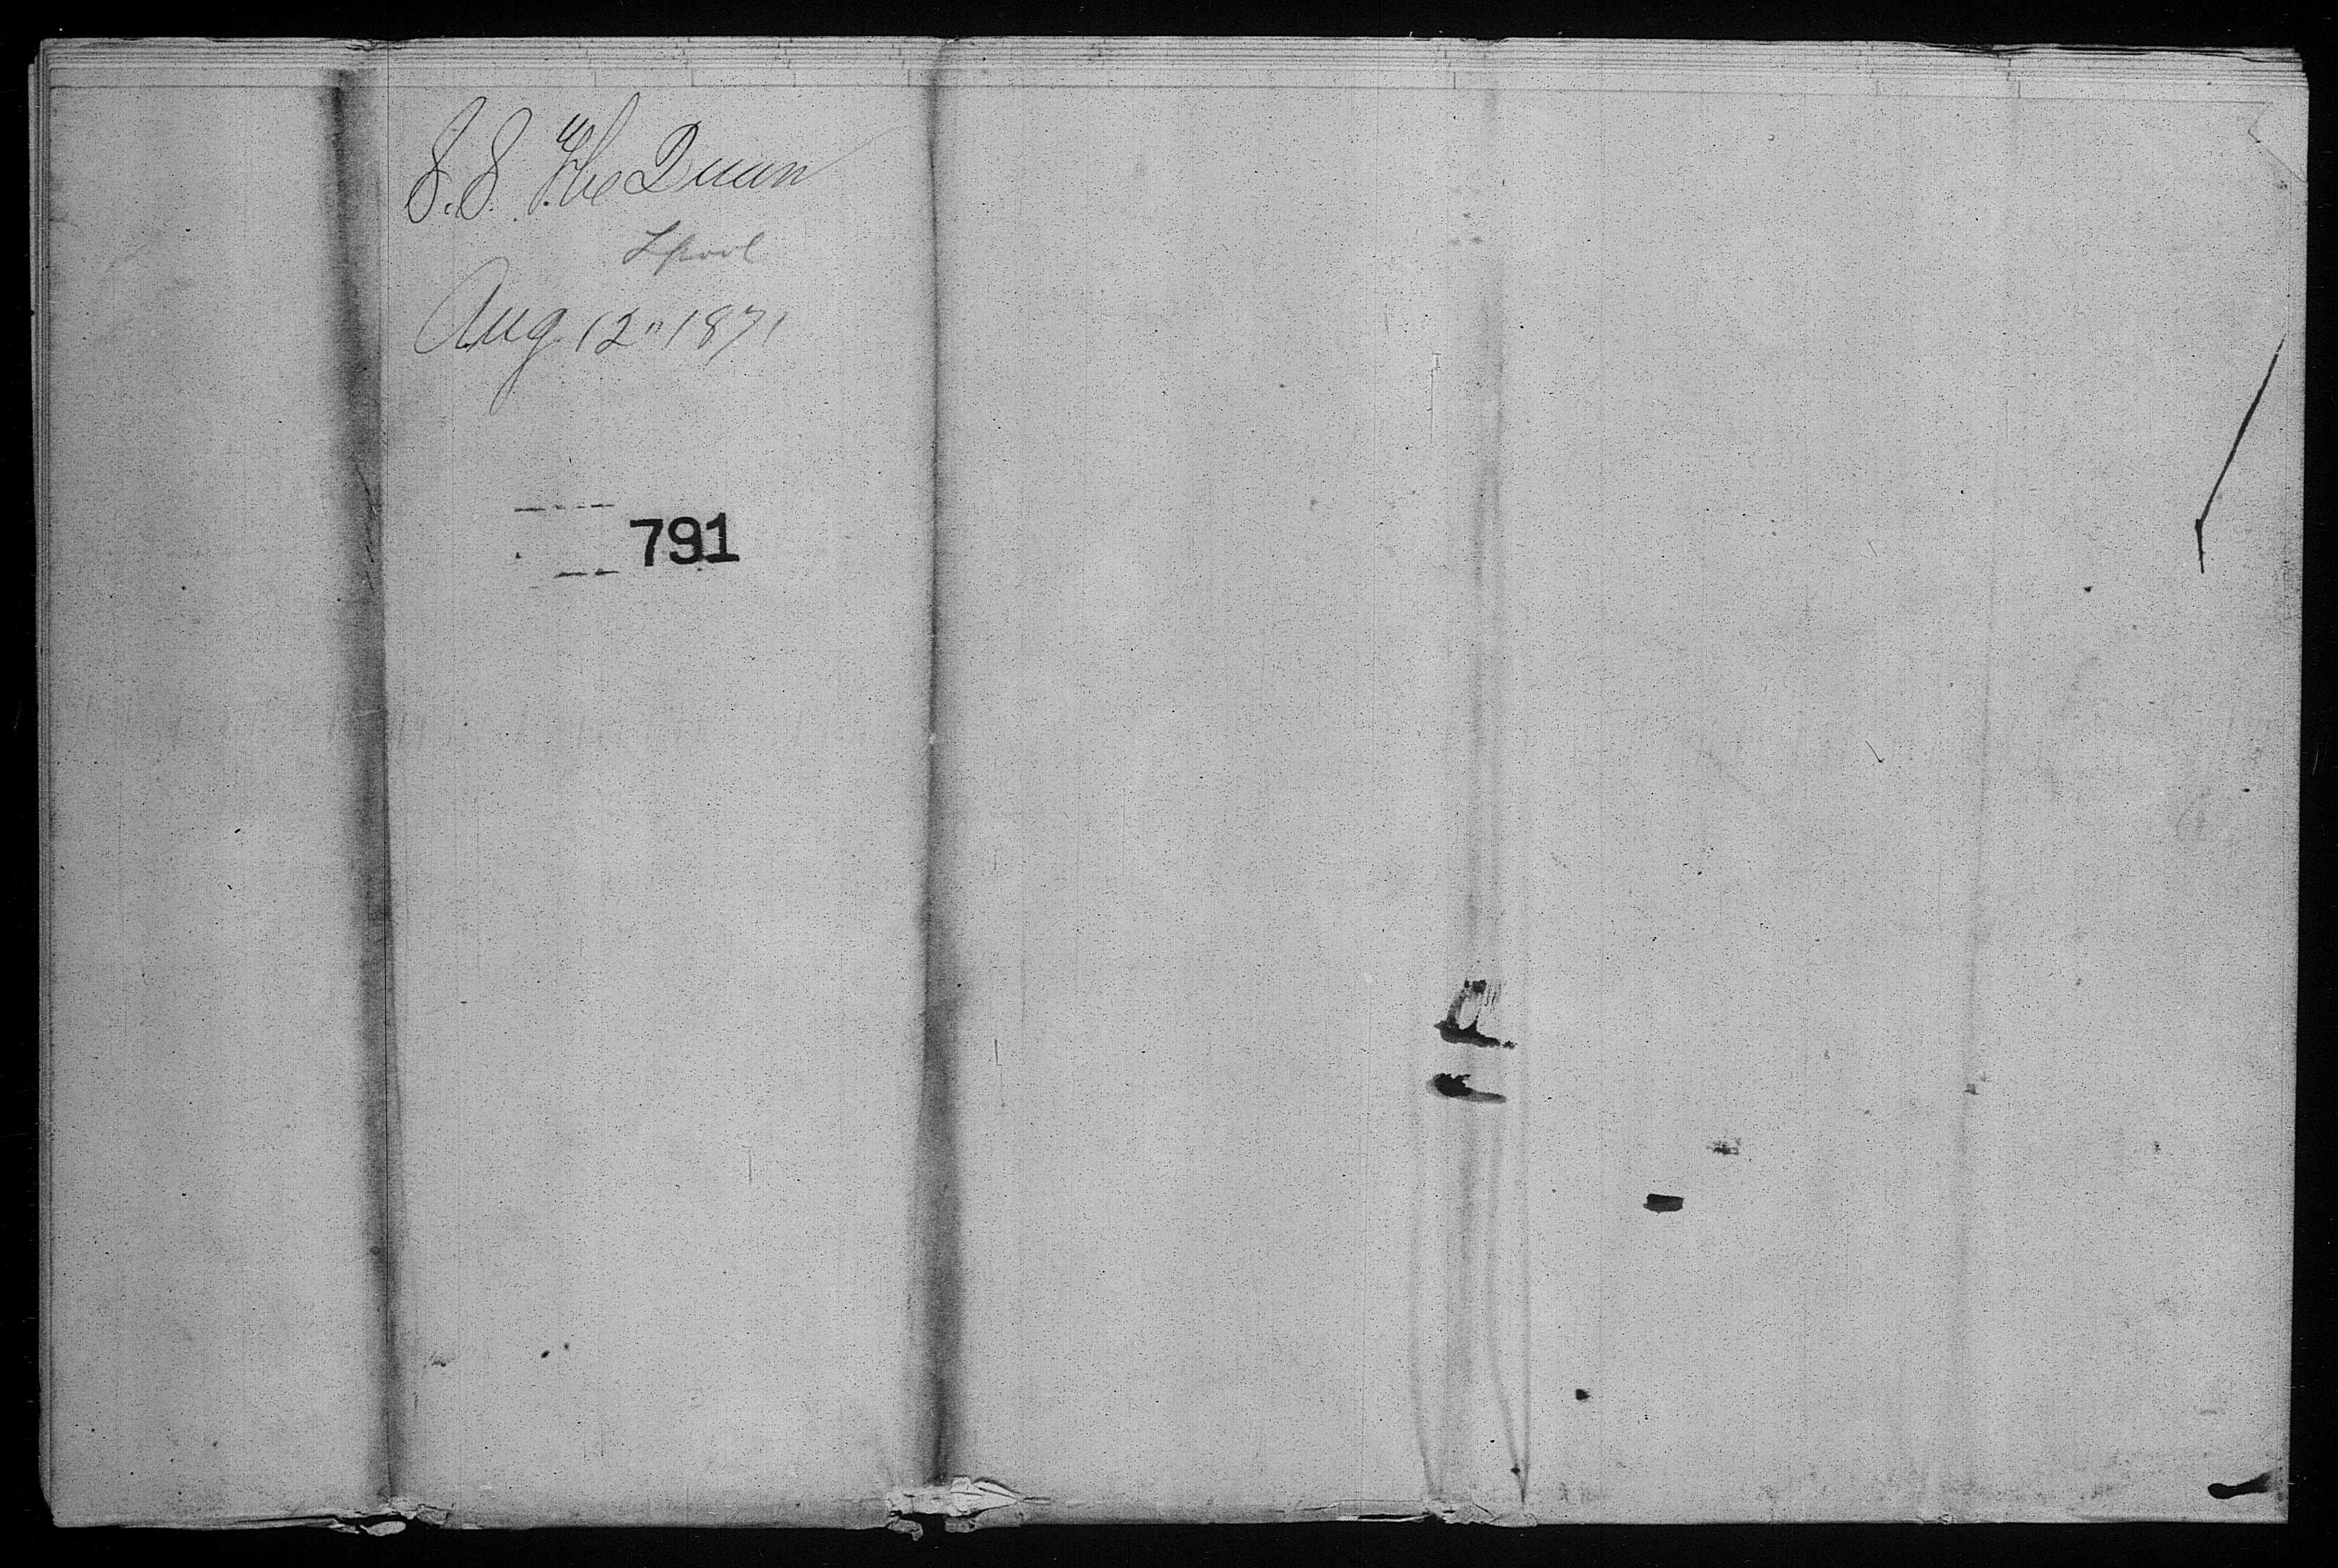 S.S. "The Queen
Lpool
Aug 12" 1871
791